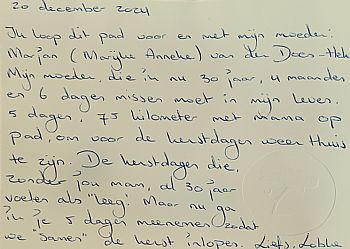 20 december 2024
Ik loop dit pad voor en met mijn moeder:
Marjan (Marijke Anneke) van der Does-Hek
Mijn moeder, die ik nu 30 jaar, 4 maanden
en 6 dagen missen moet in mijn leven.
5 dagen, 75 kilometer met mama op
pad, om voor de kerstdagen weer thuis
te zijn. De kerstdagen die,
zonder jou mam, al 30 jaar
voelen als "leeg". Maar nu ga
ik je 5 dagen meenemen zodat
we "samen" de kerst inlopen. Liefs,